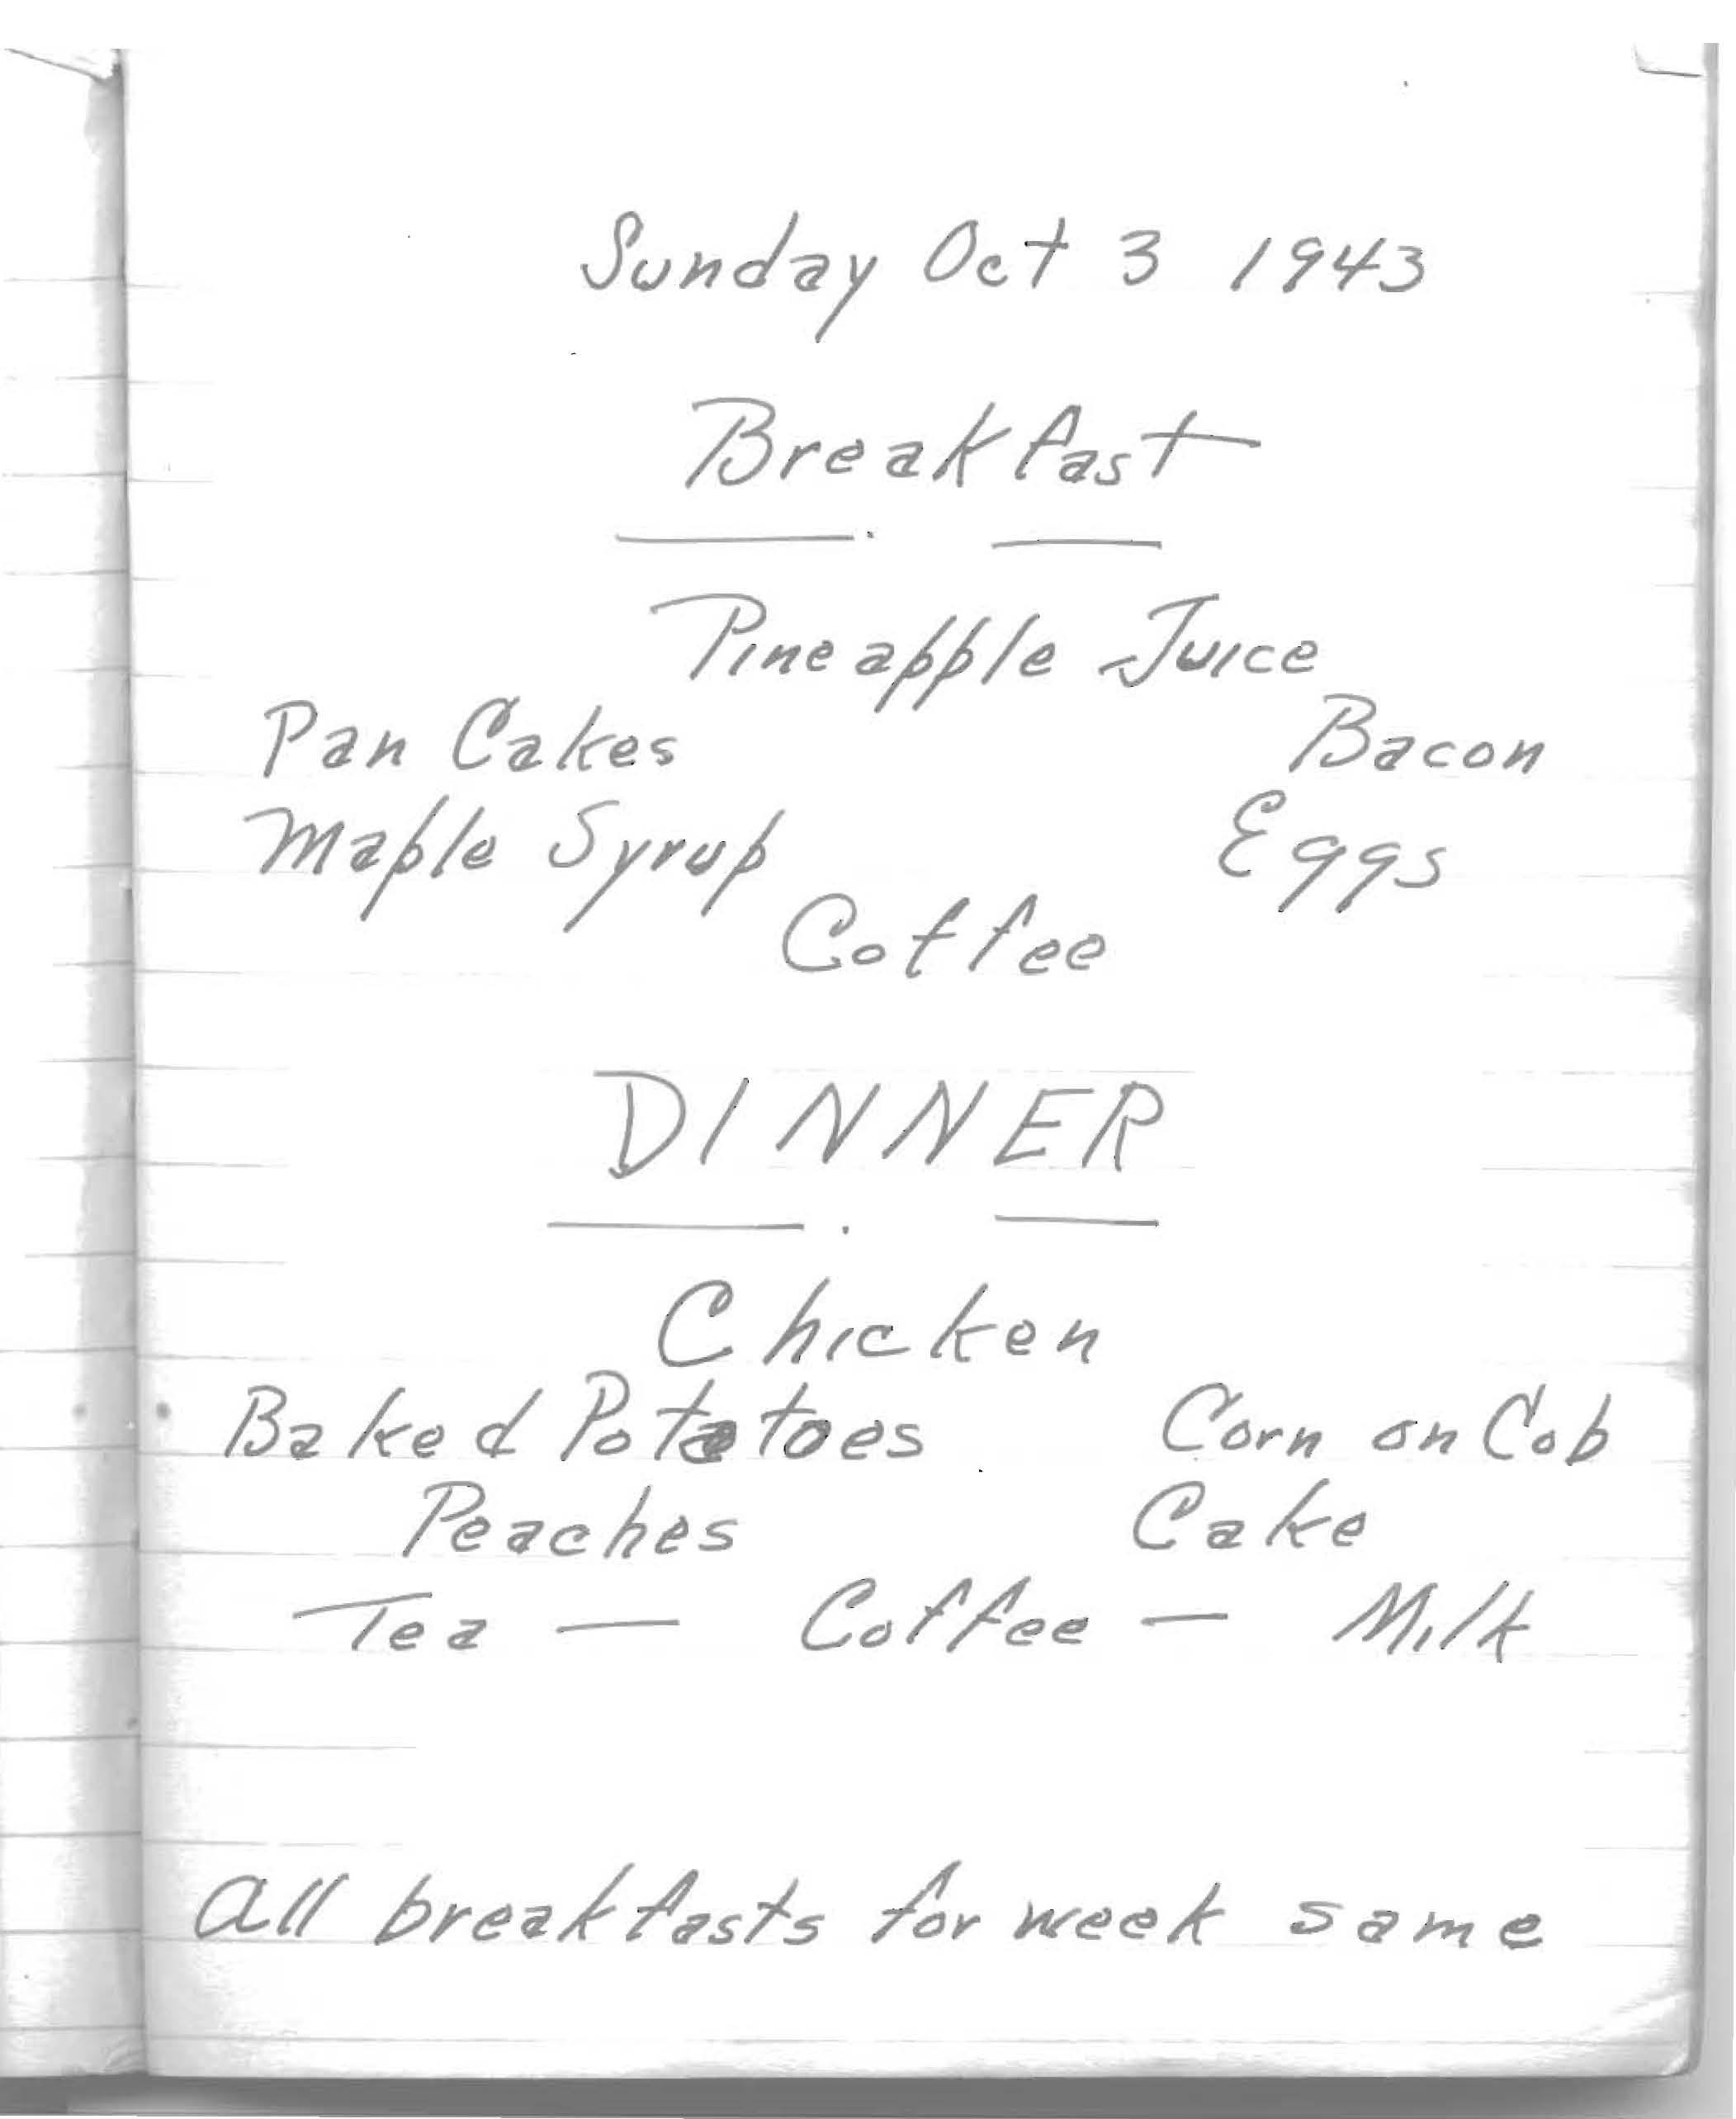 Sunday Oct 3 1943
Breakfast
Pineapple Juice
Pan Cakes Bacon
Maple Syrup Eggs
Coffee
DINNER
Chicken
Baked Potatoes Corn on Cob
Peaches Cake
Tea — Coffee — Milk
All breakfasts for week same